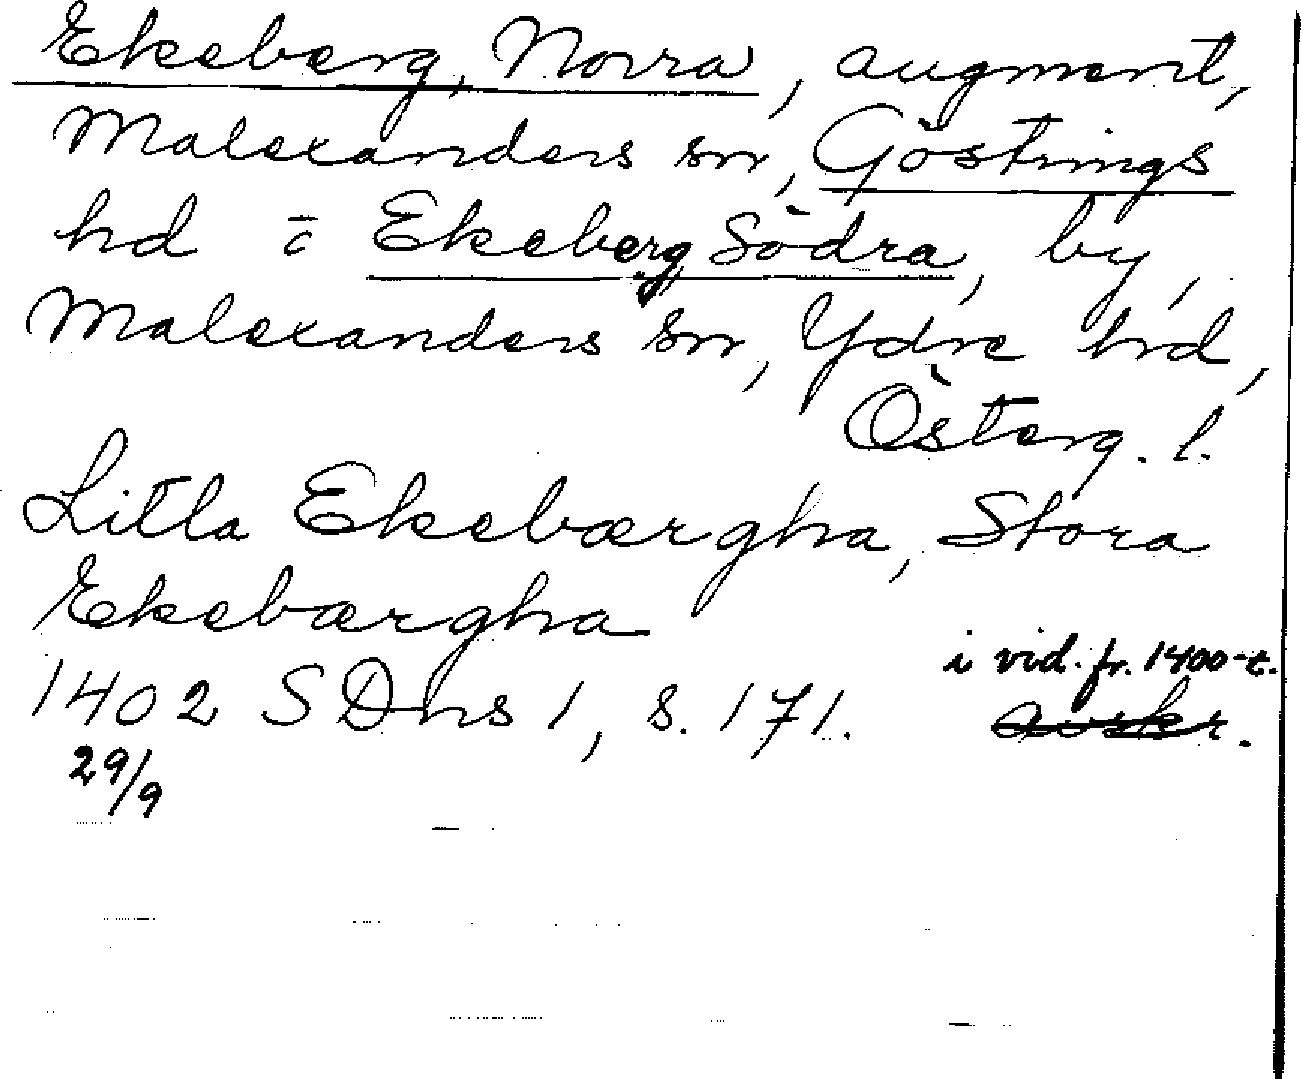 Ekeberg, Norra, augment,
Malexanders sn, Göstrings
hd o Ekeberg Södra, by,
Malexanders sn, Ydre hd,
Österg. l.
Litla Ekebærgha, Stora
Ekebærgha
i vid. fr. 1400-t.
1402 SDns 1, s. 171. avskr.
29/9